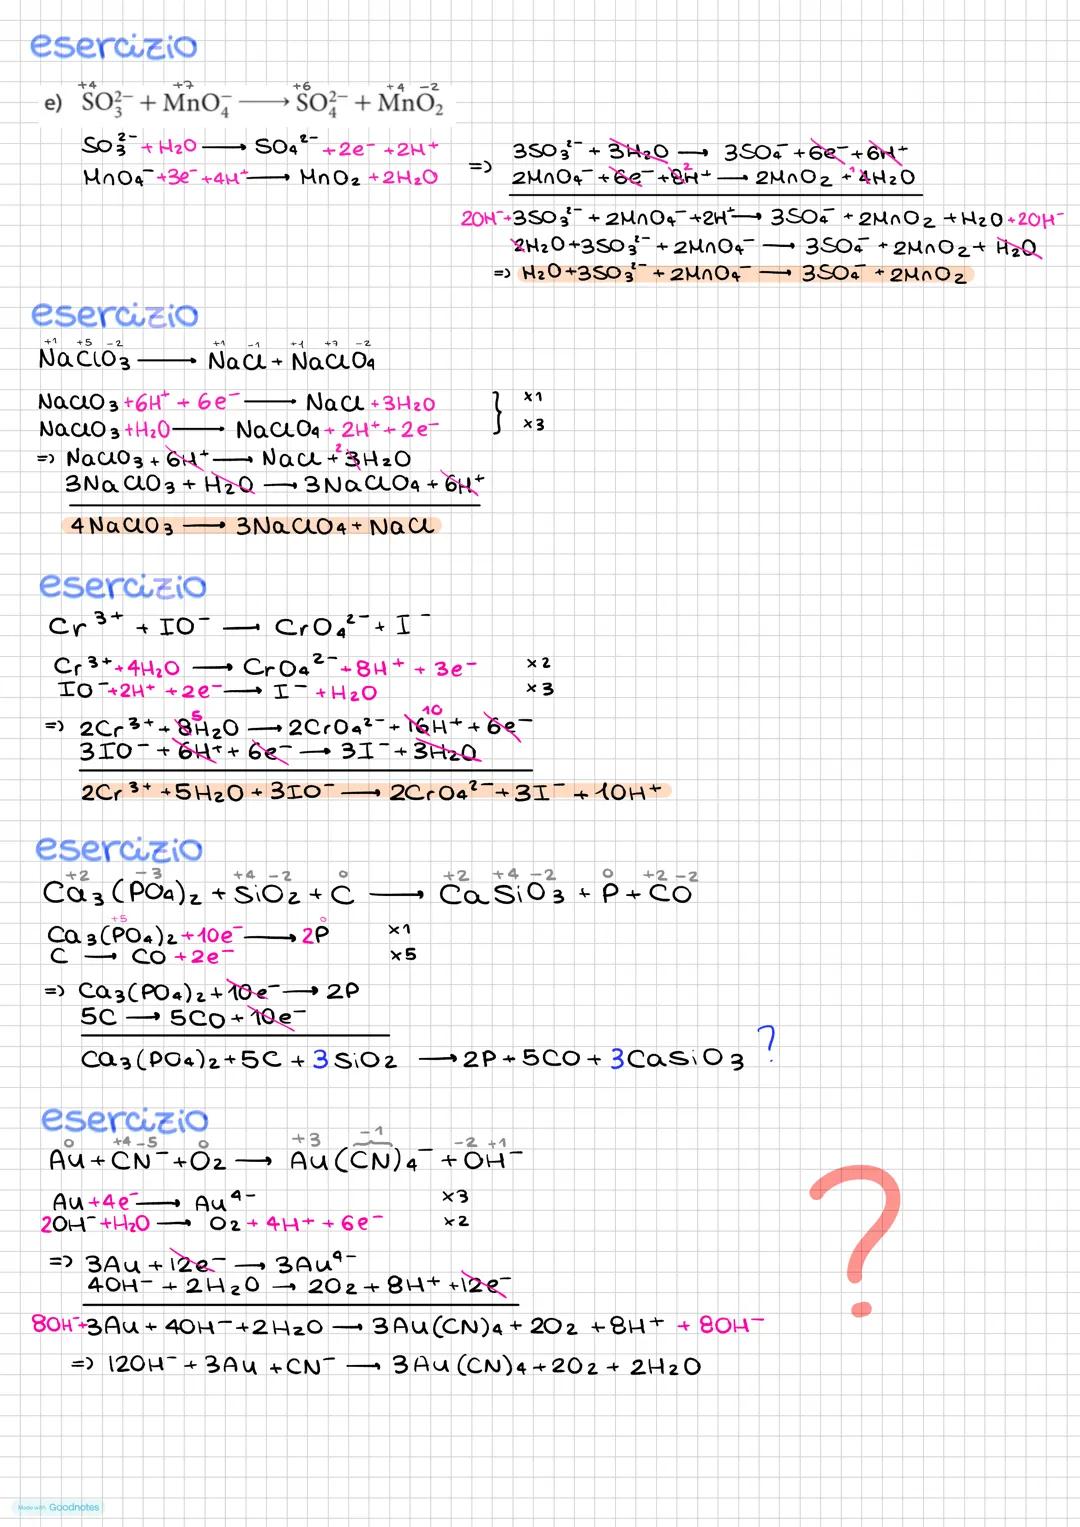 esercizio
+4 +7 +6 +4 -2
e) SO₃²⁻ + MnO₄⁻ ⟶ SO₄²⁻ + MnO₂
SO₃²⁻ + H₂O ⟶ SO₄²⁻ + 2e⁻ + 2H⁺
MnO₄⁻ + 3e⁻ + 4H⁺ ⟶ MnO₂ + 2H₂O
=> 3SO₃²⁻ + 3H₂O ⟶ 3SO₄⁻ + 6e⁻ + 6H⁺
2MnO₄⁻ + 6e⁻ + 8H⁺ 2 ⟶ 2MnO₂ + 4H₂O 1
2OH⁻ + 3SO₃²⁻ + 2MnO₄⁻ + 2H⁺ ⟶ 3SO₄⁻ + 2MnO₂ + H₂O + 2OH⁻
2H₂O + 3SO₃²⁻ + 2MnO₄⁻ ⟶ 3SO₄⁻ + 2MnO₂ + H₂O
=> H₂O + 3SO₃²⁻ + 2MnO₄⁻ ⟶ 3SO₄⁻ + 2MnO₂
esercizio
+1 +5 -2 +1 -1 +1 +7 -2
NaClO₃ ⟶ NaCl + NaClO₄
NaClO₃ + 6H⁺ + 6e⁻ ⟶ NaCl + 3H₂O } x1
NaClO₃ + H₂O ⟶ NaClO₄ + 2H⁺ + 2e⁻ x3
=> NaClO₃ + 6H⁺ ⟶ NaCl + 3H₂O 2
3NaClO₃ + H₂O ⟶ 3NaClO₄ + 6H⁺
4NaClO₃ ⟶ 3NaClO₄ + NaCl
esercizio
Cr³⁺ + IO⁻ ⟶ CrO₄²⁻ + I⁻
Cr³⁺ + 4H₂O ⟶ CrO₄²⁻ + 8H⁺ + 3e⁻ x2
IO⁻ + 2H⁺ + 2e⁻ ⟶ I⁻ + H₂O x3
5 10
=> 2Cr³⁺ + 8H₂O ⟶ 2CrO₄²⁻ + 16H⁺ + 6e⁻
3IO⁻ + 6H⁺ + 6e⁻ ⟶ 3I⁻ + 3H₂O
2Cr³⁺ + 5H₂O + 3IO⁻ ⟶ 2CrO₄²⁻ + 3I⁻ + 10H⁺
esercizio
+2 -3 +4 -2 0 +2 +4 -2 0 +2 -2
Ca₃(PO₄)₂ + SiO₂ + C ⟶ CaSiO₃ + P + CO
+5 0
Ca₃(PO₄)₂ + 10e⁻ ⟶ 2P x1
C ⟶ CO + 2e⁻ x5
=> Ca₃(PO₄)₂ + 10e⁻ ⟶ 2P
5C ⟶ 5CO + 10e⁻
Ca₃(PO₄)₂ + 5C + 3SiO₂ ⟶ 2P + 5CO + 3CaSiO₃ ?
esercizio
0 +4 -5 0 +3 -1 -2 +1
Au + CN⁻ + O₂ ⟶ Au(CN)₄⁻ + OH⁻
Au + 4e⁻ ⟶ Au⁴⁻ x3
2OH⁻ + H₂O ⟶ O₂ + 4H⁺ + 6e⁻ x2
?
=> 3Au + 12e⁻ ⟶ 3Au⁴⁻
4OH⁻ + 2H₂O ⟶ 2O₂ + 8H⁺ + 12e⁻
8OH⁻ + 3Au + 4OH⁻ + 2H₂O ⟶ 3Au(CN)₄ + 2O₂ + 8H⁺ + 8OH⁻
=> 12OH⁻ + 3Au + CN⁻ ⟶ 3Au(CN)₄ + 2O₂ + 2H₂O
Made with Goodnotes